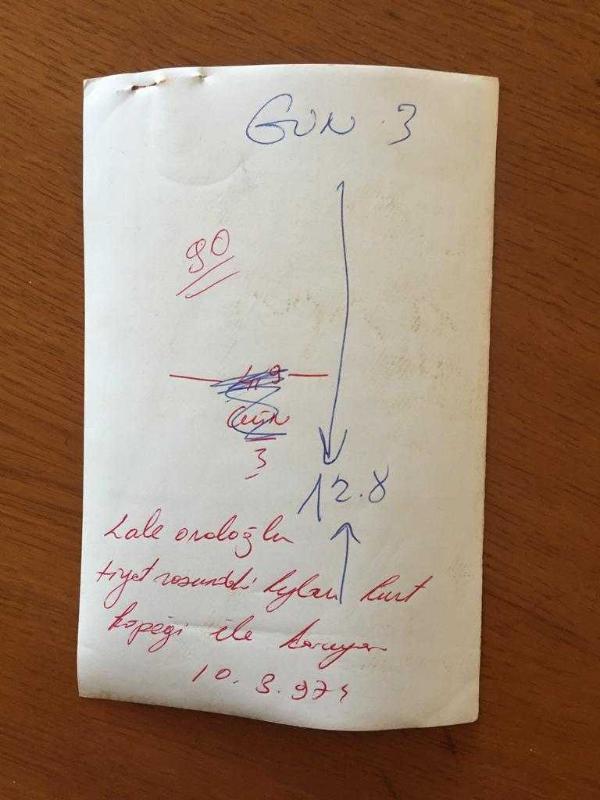 GÜN 3
90
GÜN
3
12.8
Lale oraloğlu
tiyatrosundaki kurt
köpeği ile koruyor
10.3.974